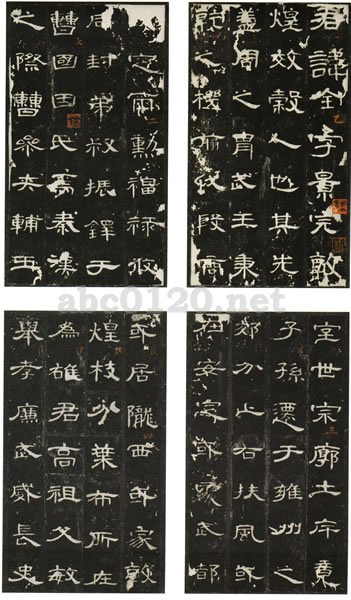 君諱全字景完敦
煌效穀人也其先
蓋周之冑武王秉
乾之機翦伐殷商
定爾勳福祿攸
同封弟叔振鐸于
曹國因氏焉秦漢
之際曹參夾輔王
室世宗廓土斥竟
子孫遷于雍州之
郊分止右扶風或
在安定或處武都
或居隴西或家敦
煌枝分葉布所在
為雄君高祖父敏
舉孝廉武威長史
abc0120.net